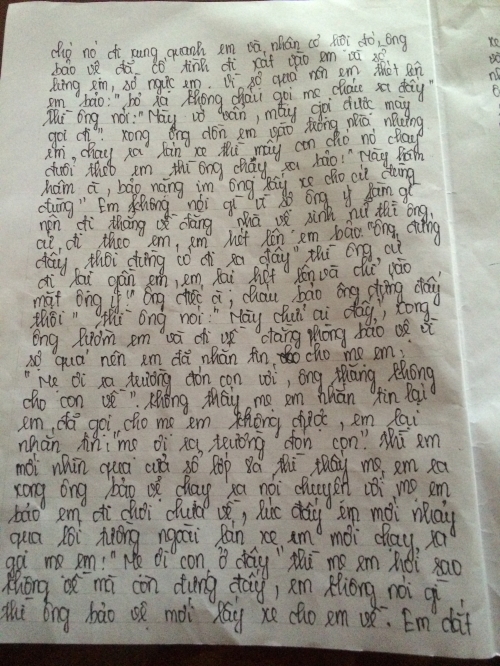 chó nó đi xung quanh em và nhân cơ hồi đó, ông
bảo vệ đã cố tình đi xát vào em và sờ
lưng em, sờ ngực em. Vì sợ quá nên em thét lên
em bảo: "bỏ ra không cháu gọi mẹ cháu ra đây"
thì ông nói: "Mày vớ vẩn, mày gọi được mày
gọi đi". xong ông dồn em vào trong nhà nhưng
em chạy ra lán xe thì mấy con chó nó chạy
đuổi theo em thì ông chạy ra bảo: "Mày hâm
hâm à, bảo nằng im ông lấy xe cho cứ đứng
đứng" Em không nói gì vì sợ ông ý làm gì
nên đi thẳng về đằng nhà vệ sinh nữ thì ông
cứ đi theo em, em hét lên em bảo "ông đứng
đấy thôi đừng có đi ra đây" thì ông cứ
đi lại gần em, em lại hét lên và chỉ vào
mặt ông ý: "ông điếc à, cháu bảo ông đứng đấy
thôi" thì ông nói: "Mày chửi ai đấy", xong
ông lườm em và đi về đằng phòng bảo vệ vì
sợ quá nên em đã nhắn tin cho mẹ em:
"Mẹ ơi ra trường đón con với, ông thắng không
cho con về". không thấy mẹ em nhắn tin lại
em đã gọi cho mẹ em không được, em lại
nhắn tin: "mẹ ơi ra trường đón con". thì em
mới nhìn qua cửa sổ lớp 8a thì thấy mẹ em ra
xong ông bảo vệ chạy ra nói chuyện với mẹ em
bảo em đi chơi chưa về, lúc đấy em mới nhảy
qua lối tường ngoài lán xe em mới chạy ra
gọi mẹ em: "Mẹ ơi con ở đây" thì mẹ em hỏi sao
không về mà còn đứng đấy, em không nói gì
thì ông bảo vệ mới lấy xe cho em về. Em dắt